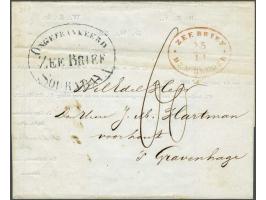 ONGEFRANKEERD
ZEE BRIEF
SOERABAYA
ZEE BRIEF
Wel Edel Heer
De Heer J. M. Hartman
voorhout
's Gravenhage